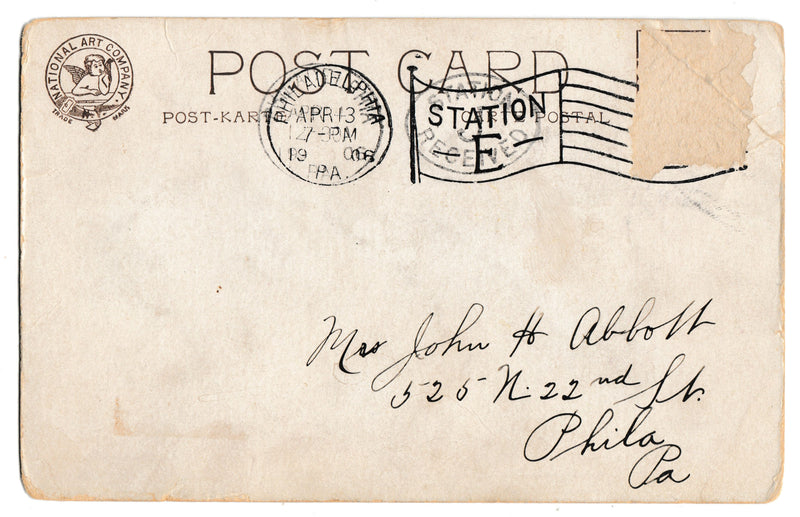 NATIONAL ART COMPANY.
N.
TRADE MARK
POST CARD
POST-KART CARTE POSTAL
PHILADELPHIA
APR 13
7-PM
1906
PA.
STATION
E
STATION
RECEIVED
Mrs John H Abbott
525 N. 22nd St.
Phila
Pa